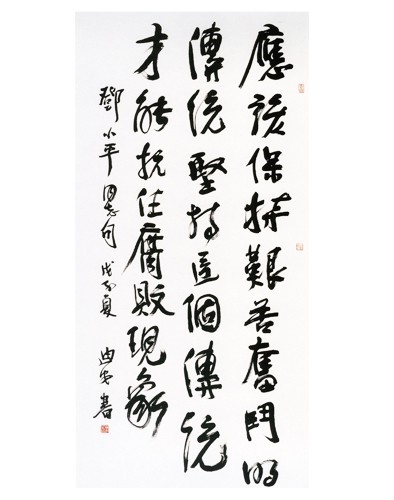 應該保持艱苦奮鬥的
傳統堅持這個傳統
才能抗住腐敗現象
鄧小平同志句 戊子夏 書